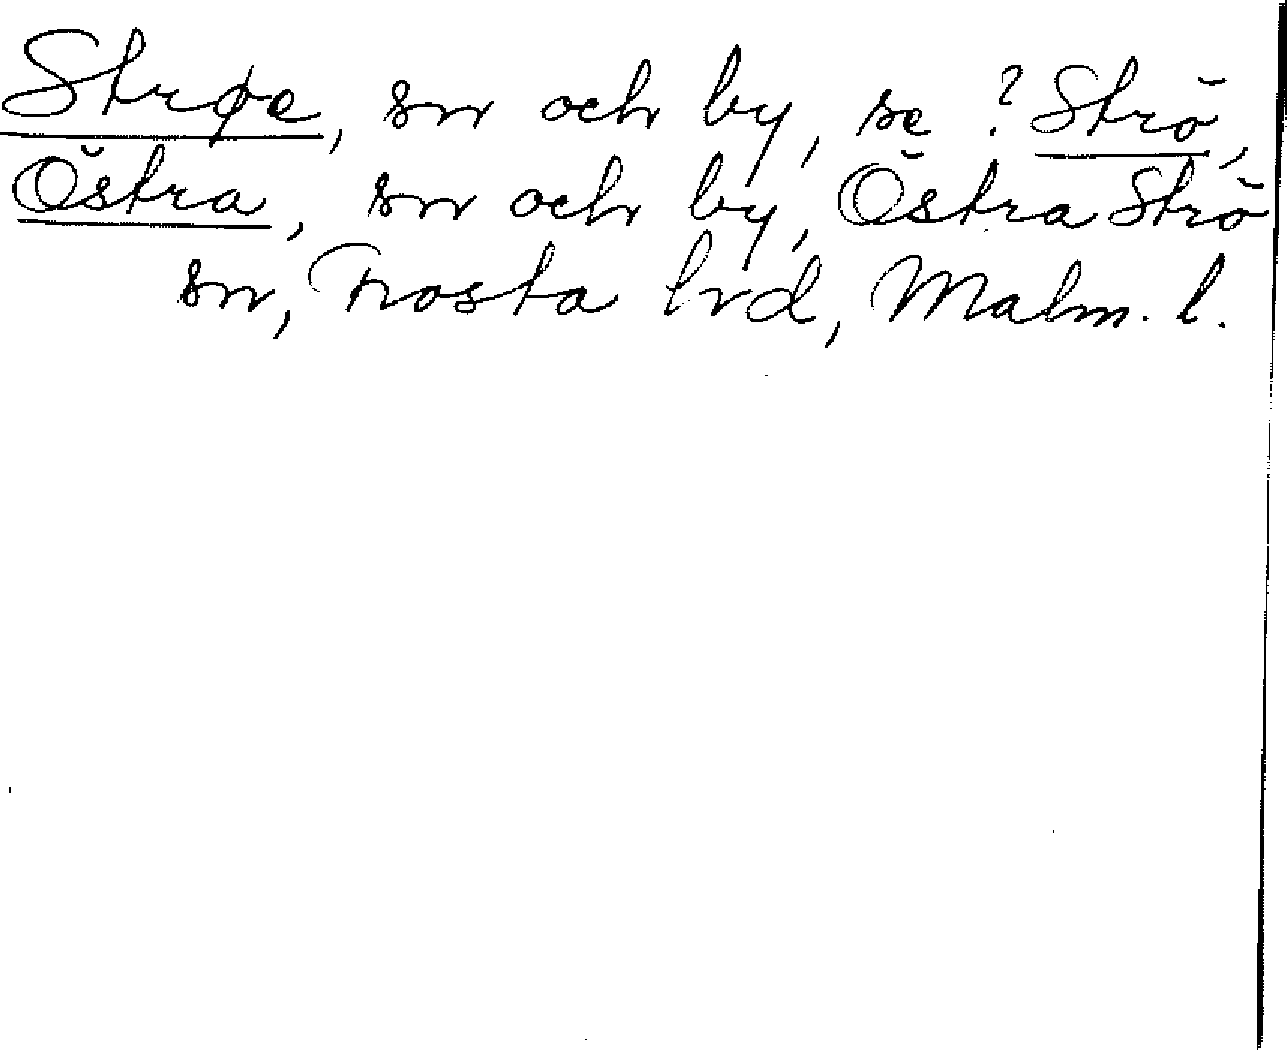 Strøe, sn och by, se ? Strö,
Östra, sn och by, Östra Strö
sn, Frosta hrd, Malm. l.